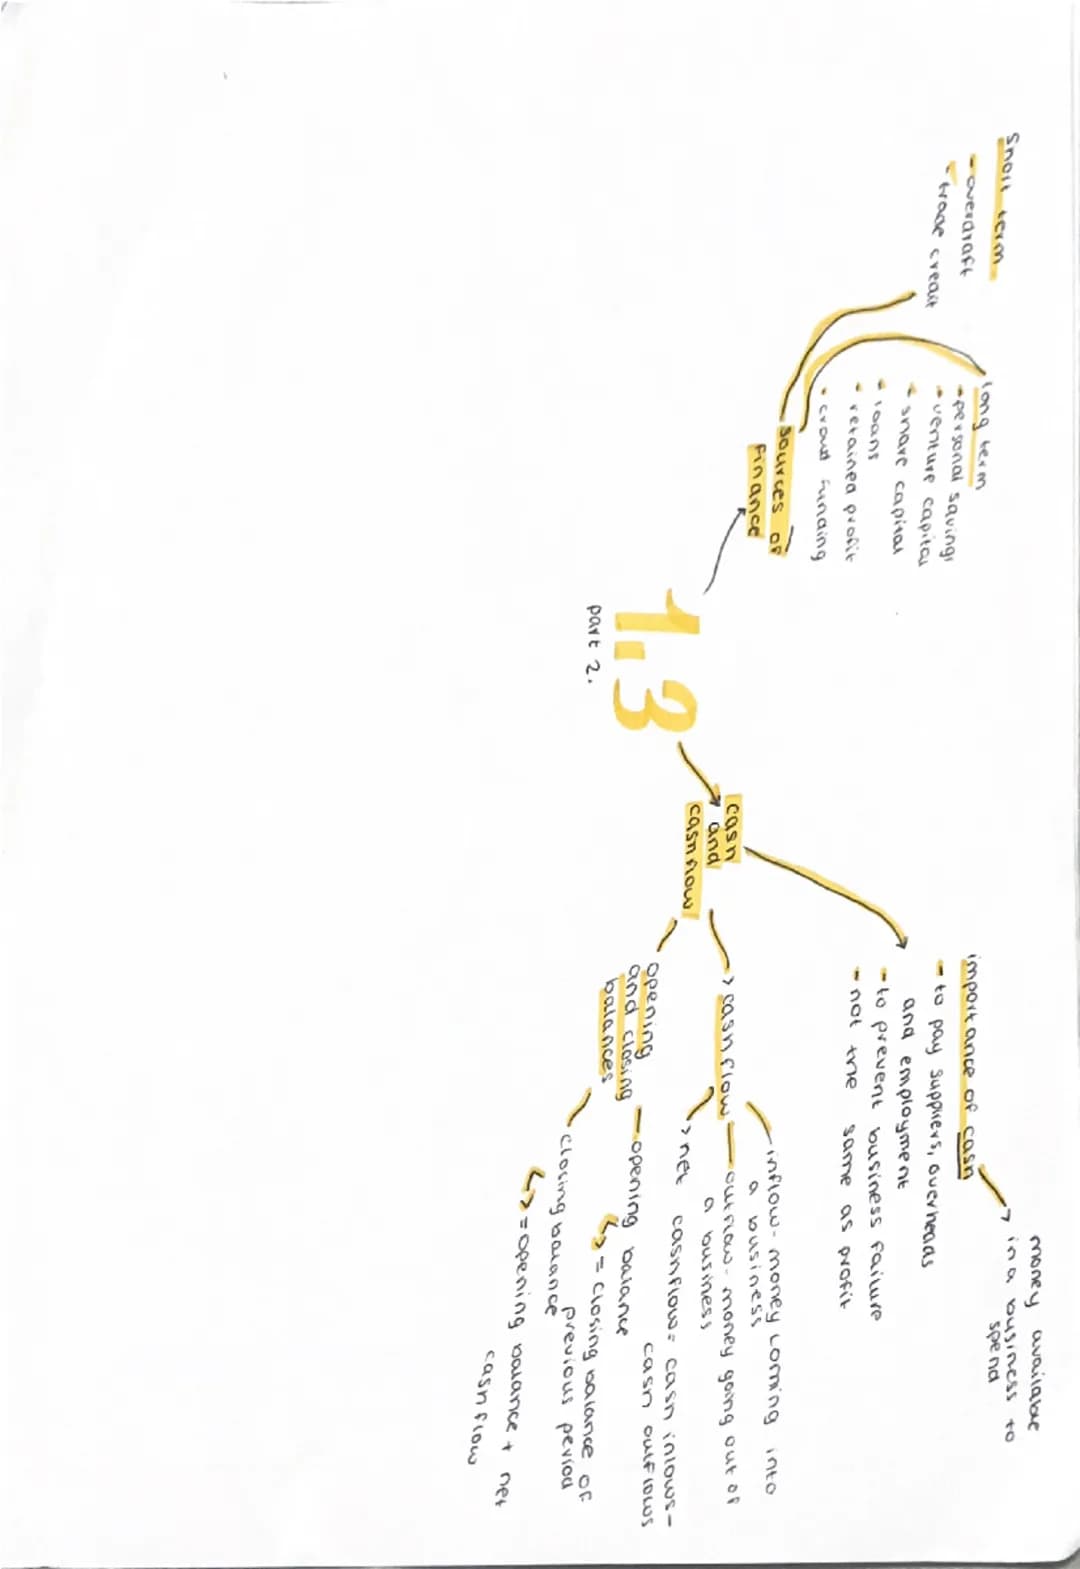 short term
- overdraft
- trade credit
long term
- personal savings
- venture capital
- share capital
- loans
- retained profit
- crowd funding
sources of
finance
1.3
part 2.
cash
and
cashflow
importance of cash
money available
> in a business to
spend
- to pay suppliers, overheads
and employment
- to prevent business failure
- not the same as profit
> cashflow
inflow - money coming into
a business
outflow - money going out of
a business
> net cashflow = cash inlows -
cash outflows
opening
and closing
balances
opening balance
↳ = closing balance of
previous period
closing balance
↳ = opening balance + net
cashflow